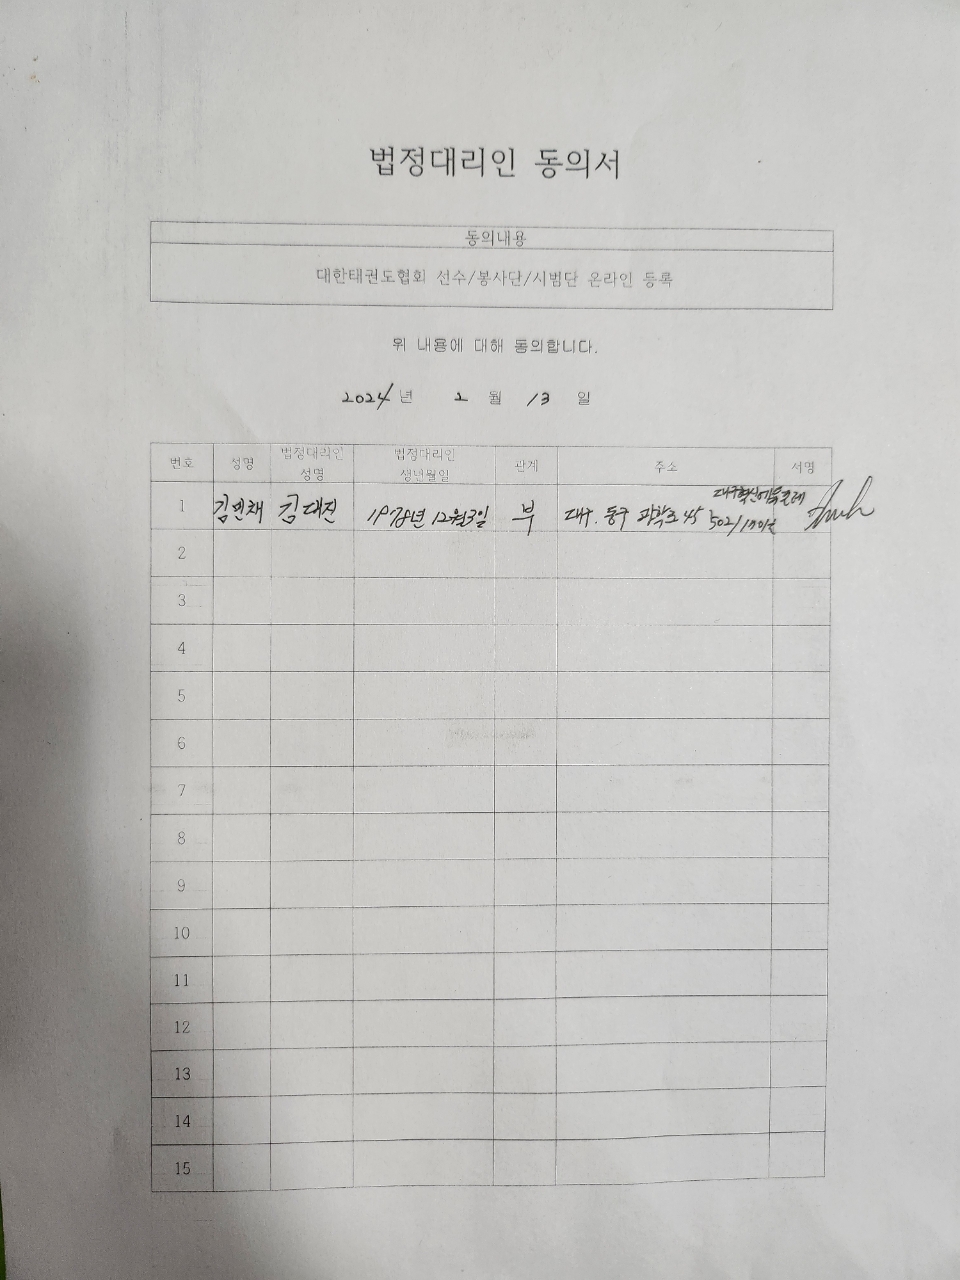 법정대리인 동의서
동의내용
대한태권도협회 선수/봉사단/시범단 온라인 등록
위 내용에 대해 동의합니다.
2024년 2 월 13 일
번호 성명 법정대리인 성명 법정대리인 생년월일 관계 주소 서명
1 김민채 김대진 1978년 12월3일 부 대구. 동구 45
2
3
4
5
6
7
8
9
10
11
12
13
14
15